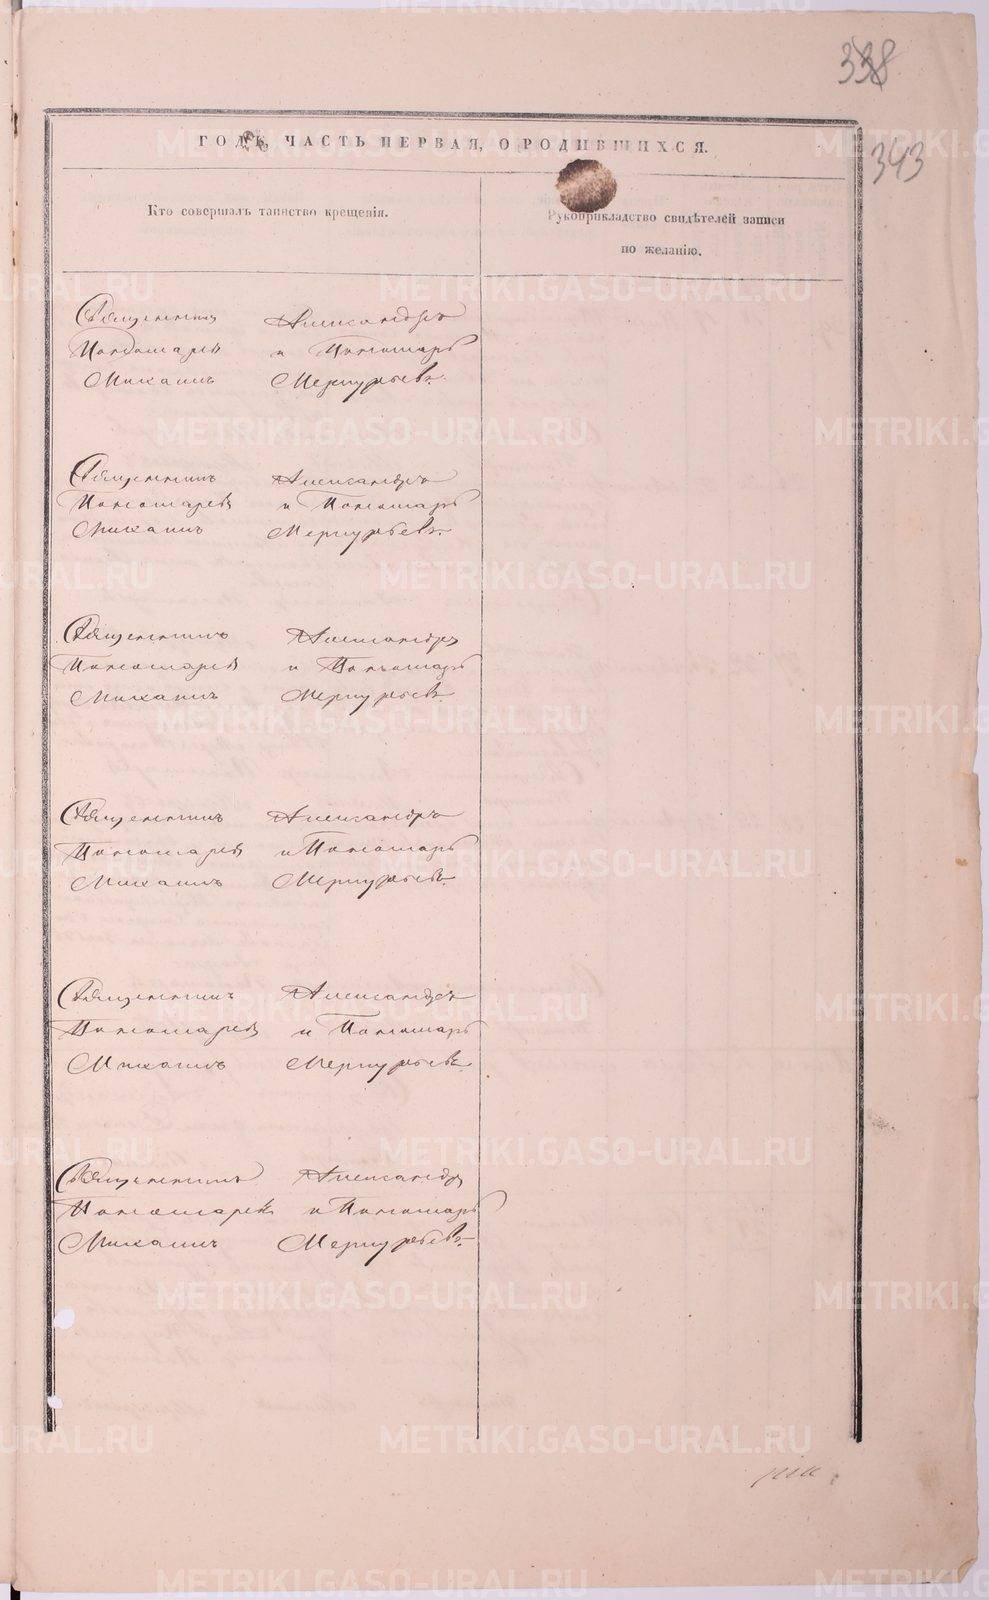 338
343
ГОДЪ, ЧАСТЬ ПЕРВАЯ, О РОДИВШИХСЯ.
Кто совершалъ таинство крещенія.
Рукоприкладство свидѣтелей записи
по желанію.
Священникъ Александръ
Пономаревъ и Пономарь
Михаилъ Меркурьевъ.
Священникъ Александръ
Пономаревъ и Пономарь
Михаилъ Меркурьевъ.
Священникъ Александръ
Пономаревъ и Пономарь
Михаилъ Меркурьевъ.
Священникъ Александръ
Пономаревъ и Пономарь
Михаилъ Меркурьевъ.
Священникъ Александръ
Пономаревъ и Пономарь
Михаилъ Меркурьевъ.
Священникъ Александръ
Пономаревъ и Пономарь
Михаилъ Меркурьевъ.
METRIKI.GASO-URAL.RU